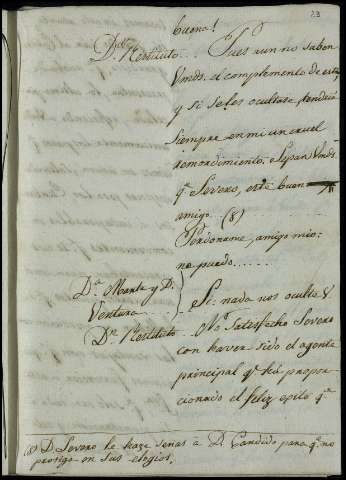 23
bueno!
Dn. Restituto... Pues aun no saben
Vmds. el complemento de esto,
y si se les ocultase, tendria
siempre en mi un cruel
remordimiento. Sepan Vmds.
qe. Severo, este buen
amigo... (8)
Perdoname, amigo mio:
no puedo......
Da. Marta y D.
Ventura......
Si: nada nos oculte V
Dn. Restituto... No satisfecho Severo
con haver sido el agente
principal qe. ha propor-
cionado el feliz exito qe.
(8) D. Severo le haze señas à D. Candido para qe. no
prosiga en sus elogios.